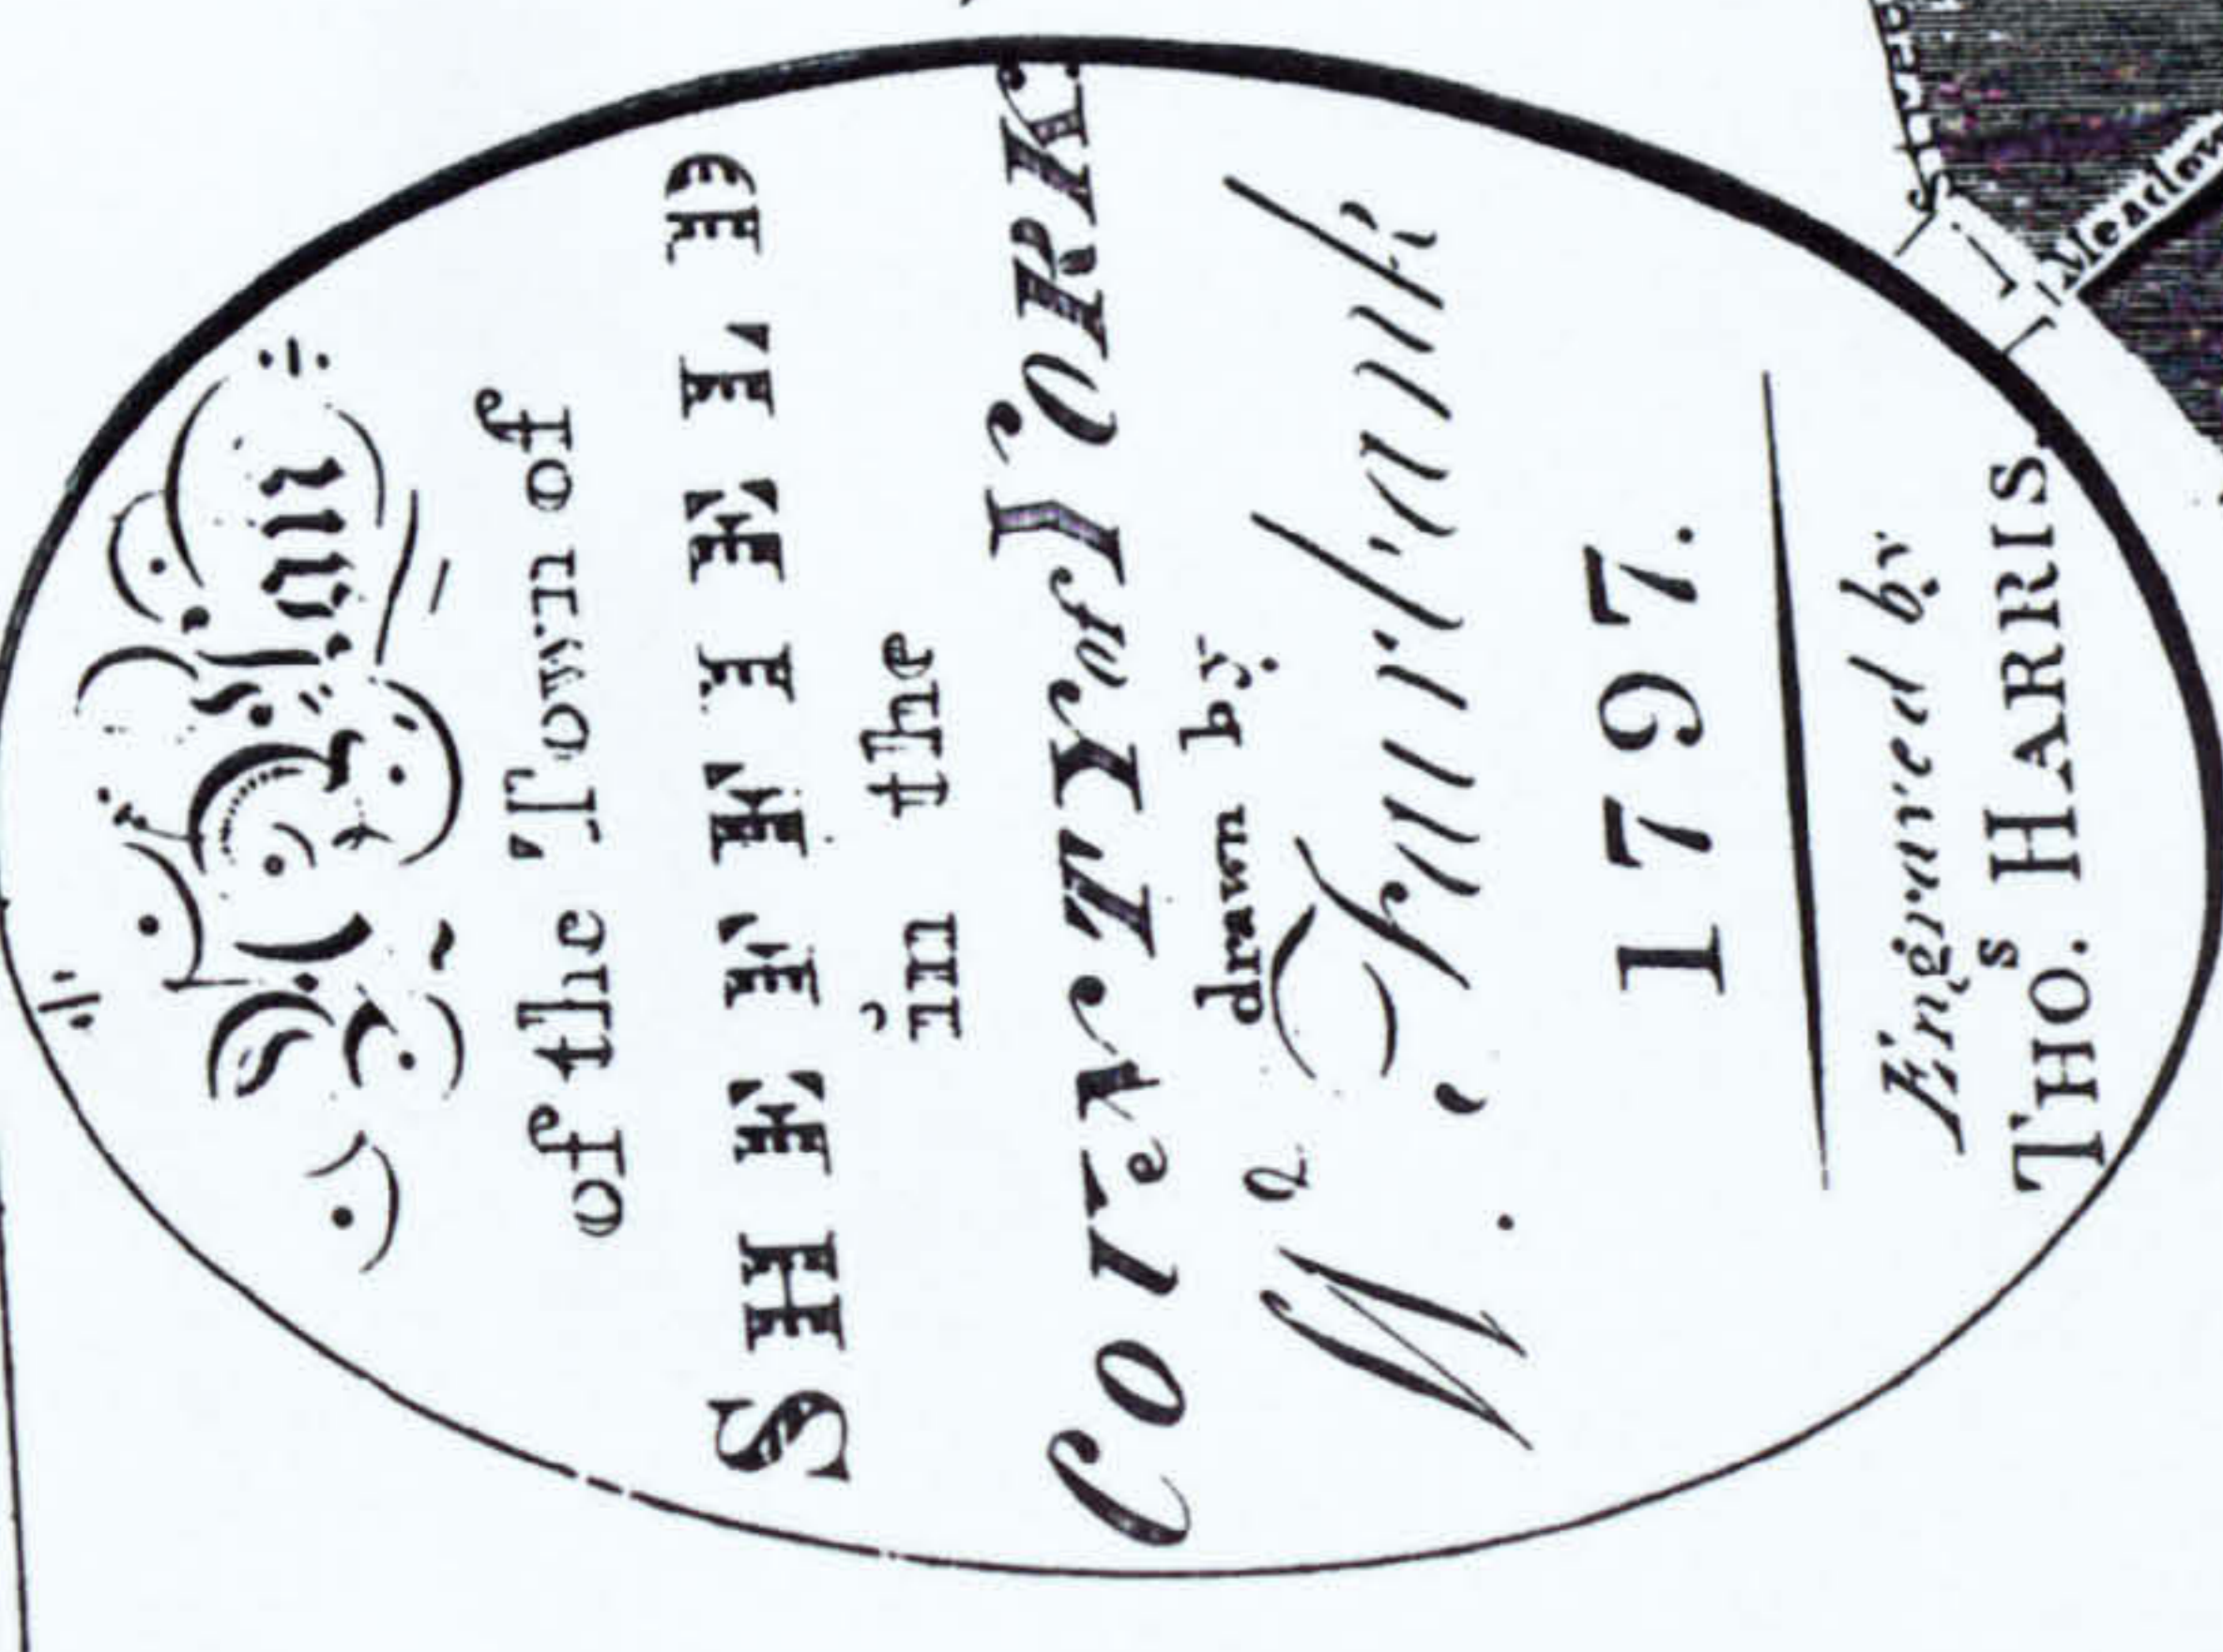 A Plan
of the Town of
SHEFFIELD
in the
COUNTY of YORK
drawn by
W.m Fairbank
1797.
Engraved by
THO.s HARRIS.
Meadow